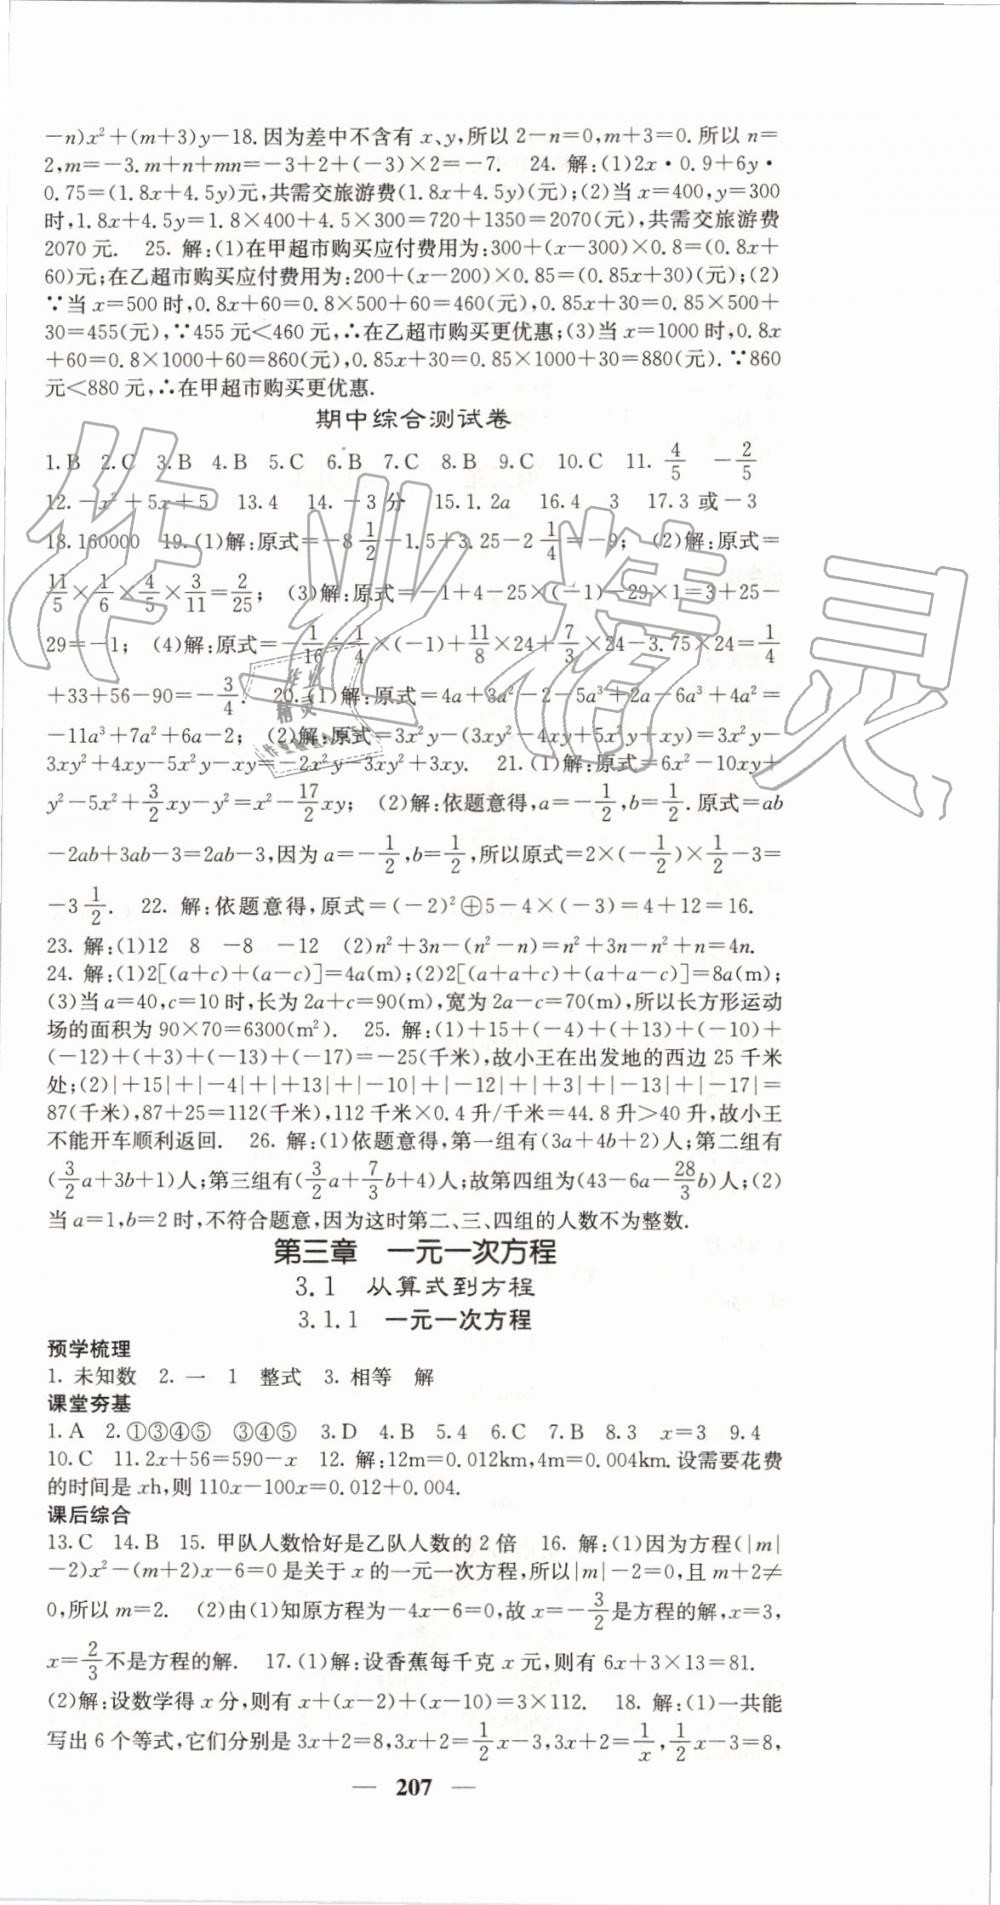 －n)x²＋(m＋3)y－18.因为差中不含有 x、y,所以 2－n＝0,m＋3＝0.所以 n＝
2,m＝－3.m＋n＋mn＝－3＋2＋(－3)×2＝－7.　24. 解:(1)2x·0.9＋6y·
0.75＝(1.8x＋4.5y)元,共需交旅游费(1.8x＋4.5y)(元);(2)当 x＝400,y＝300
时,1.8x＋4.5y＝1.8×400＋4.5×300＝720＋1350＝2070(元),共需交旅游费
2070 元.　25. 解:(1)在甲超市购买应付费用为:300＋(x－300)×0.8＝(0.8x＋
60)元;在乙超市购买应付费用为:200＋(x－200)×0.85＝(0.85x＋30)(元);(2)
∵当 x＝500 时,0.8x＋60＝0.8×500＋60＝460(元),0.85x＋30＝0.85×500＋
30＝455(元),∵455 元＜460 元,∴在乙超市购买更优惠;(3)当 x＝1000 时,0.8x
＋60＝0.8×1000＋60＝860(元),0.85x＋30＝0.85×1000＋30＝880(元).∵860
元＜880 元,∴在甲超市购买更优惠.
期中综合测试卷
1.B　2.C　3.B　4.B　5.C　6.B　7.C　8.B　9.C　10.C　11. 4/5　－2/5
12.－x²＋5x＋5　13.4　14.－3分　15.1.2a　16.4　3　17.3 或－3
18.160000　19.(1)解:原式＝－8 1/2－1.5＋3.25－2 1/4＝－9;　(2)解:原式＝
11/5×1/6×4/5×3/11＝2/25;　(3)解:原式＝－1＋4－25×(－1)－29×1＝3＋25－
29＝－1;　(4)解:原式＝－1/16÷1/4×(－1)＋11/8×24＋7/3×24－3.75×24＝1/4
＋33＋56－90＝－3/4.　20.(1)解:原式＝4a＋3a²－2－5a³＋2a－6a³＋4a²＝
－11a³＋7a²＋6a－2;　(2)解:原式＝3x²y－(3xy²－4xy＋5x²y＋xy)＝3x²y－
3xy²＋4xy－5x²y－xy＝－2x²y－3xy²＋3xy.　21.(1)解:原式＝6x²－10xy＋
y²－5x²＋3/2xy－y²＝x²－17/2xy;　(2)解:依题意得,a＝－1/2,b＝1/2.原式＝ab
－2ab＋3ab－3＝2ab－3,因为 a＝－1/2,b＝1/2,所以原式＝2×(－1/2)×1/2－3＝
－3 1/2.　22. 解:依题意得,原式＝(－2)²⊕5－4×(－3)＝4＋12＝16.
23. 解:(1)12　8　－8　－12　(2)n²＋3n－(n²－n)＝n²＋3n－n²＋n＝4n.
24. 解:(1)2[(a＋c)＋(a－c)]＝4a(m);(2)2[(a＋a＋c)＋(a＋a－c)]＝8a(m);
(3)当 a＝40,c＝10 时,长为 2a＋c＝90(m),宽为 2a－c＝70(m),所以长方形运动
场的面积为 90×70＝6300(m²).　25. 解:(1)＋15＋(－4)＋(＋13)＋(－10)＋
(－12)＋(＋3)＋(－13)＋(－17)＝－25(千米),故小王在出发地的西边 25 千米
处;(2)|＋15|＋|－4|＋|＋13|＋|－10|＋|－12|＋|＋3|＋|－13|＋|－17|＝
87(千米),87＋25＝112(千米),112 千米×0.4 升/千米＝44.8 升＞40 升,故小王
不能开车顺利返回.　26. 解:(1)依题意得,第一组有(3a＋4b＋2)人;第二组有
(3/2a＋3b＋1)人;第三组有(3/2a＋7/3b＋4)人;故第四组为(43－6a－28/3b)人;(2)
当 a＝1,b＝2 时,不符合题意,因为这时第二、三、四组的人数不为整数.
第三章　一元一次方程
3.1　从算式到方程
3.1.1　一元一次方程
预学梳理
1. 未知数　2. 一　1　整式　3. 相等　解
课堂夯基
1.A　2.①③④⑤　③④⑤　3.D　4.B　5.4　6.C　7.B　8.3　x＝3　9.4
10.C　11.2x＋56＝590－x　12. 解:12m＝0.012km,4m＝0.004km.设需要花费
的时间是 xh,则 110x－100x＝0.012＋0.004.
课后综合
13.C　14.B　15. 甲队人数恰好是乙队人数的 2 倍　16. 解:(1)因为方程(|m|
－2)x²－(m＋2)x－6＝0 是关于 x 的一元一次方程,所以|m|－2＝0,且 m＋2≠
0,所以 m＝2.　(2)由(1)知原方程为－4x－6＝0,故 x＝－3/2是方程的解,x＝3,
x＝2/3不是方程的解.　17.(1)解:设香蕉每千克 x 元,则有 6x＋3×13＝81.
(2)解:设数学得 x 分,则有 x＋(x－2)＋(x－10)＝3×112.　18. 解:(1)一共能
写出 6 个等式,它们分别是 3x＋2＝8,3x＋2＝1/2x－3,3x＋2＝1/x,1/2x－3＝8,
— 207 —
作业精灵
作业
精灵